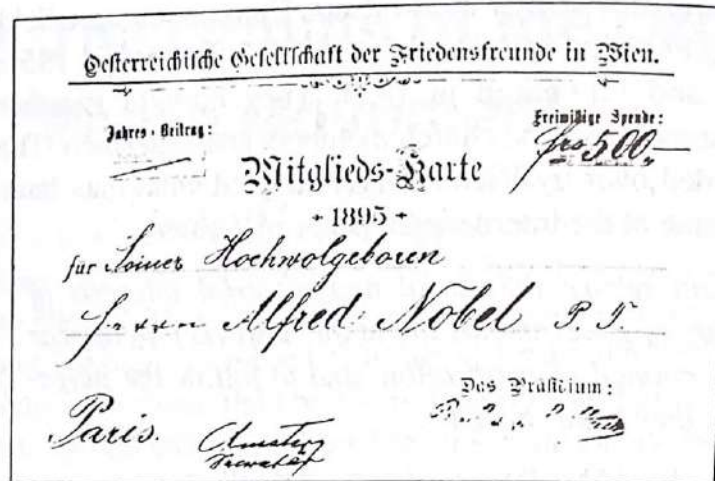 Oesterreichische Gesellschaft der Friedensfreunde in Wien.
Jahres-Beitrag:
Freiwillige Spende:
frs 500
Mitglieds-Karte
1895
für Seiner Hochwolgeboren
Herrn Alfred Nobel P. T.
Das Präsidium:
Paris.